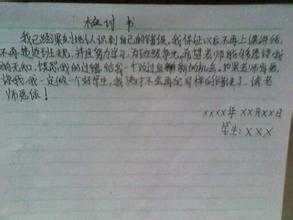 检讨书
我已经深刻地认识到自己的错误,我保证以后不再上课讲话,
不再迟到,并且努力学习,为班级争光,希望老师能够原谅我
的无知,饶恕我的过错,给我一个改过自新的机会,如果老师肯原
谅我,我一定做一个好学生,我决对不会再犯同样的错误了,请老
师恩准!
xxxx年xx月xx日
学生:XXX